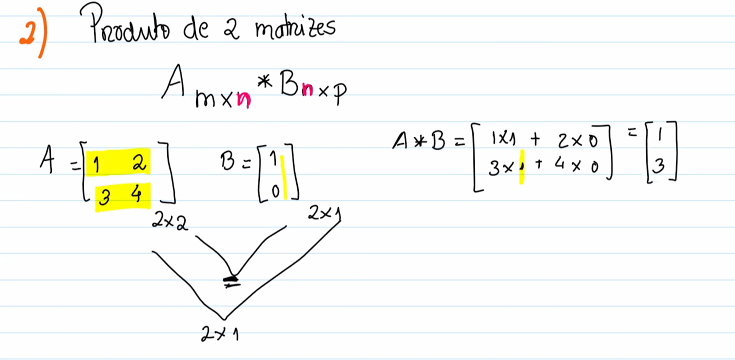 2) Produto de 2 matrizes
A m×n * B n×p
A = [1 2
3 4] 2×2
B = [1
0] 2×1
A * B = [1×1 + 2×0
3×1 + 4×0] = [1
3]
=
2×1